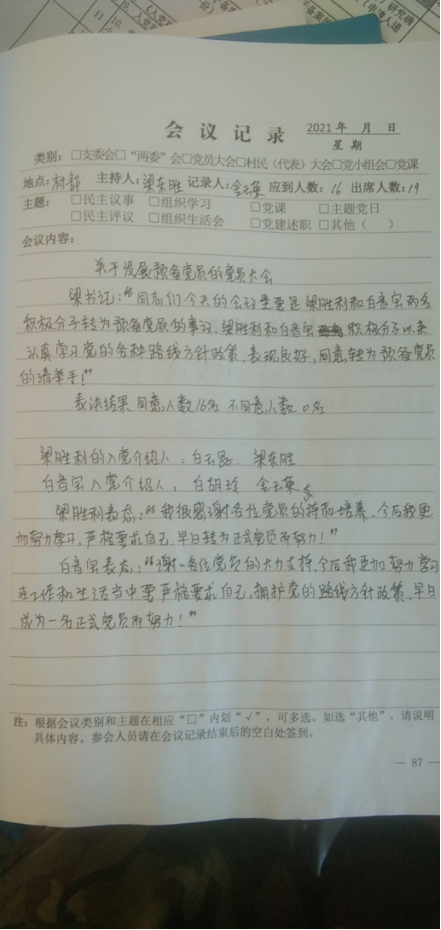 会议记录
2021年 月 日
星期
类别：□支委会□“两委”会□党员大会□村民（代表）大会□党小组会□党课
地点：村部 主持人：梁东胜 记录人：金玉荣 应到人数：16 出席人数：19
主题：□民主议事 □组织学习 □党课 □主题党日
□民主评议 □组织生活会 □党建述职 □其他（ ）
会议内容：
关于发展预备党员的党员大会
梁书记：“同志们今天的会议主要是梁胜利和白音宝两名
积极分子转为预备党员的事习、梁胜利和白音宝 积极分子以来
认真学习党的各种路线方针政策、表现良好，同意转为预备党员
的请举手！”
表决结果 同意人数16名 不同意人数 0名
梁胜利的入党介绍人：白玉 梁东胜
白音宝入党介绍人：白胡玲 金玉荣
梁胜利表态：“我很感谢各位党员的 培养、今后我更
加努力学习，严格要求自己，早日转为正式党员而努力！”
白音宝表态：“谢谢各位党员的大力支持、今后我更加努力学习
在工作和生活当中要严格要求自己，拥护党的路线方针政策、早日
成为一名正式党员而努力！”
注：根据会议类别和主题在相应“□”内划“√”，可多选。如选“其他”，请说明
具体内容。参会人员请在会议记录结束后的空白处签到。
— 87